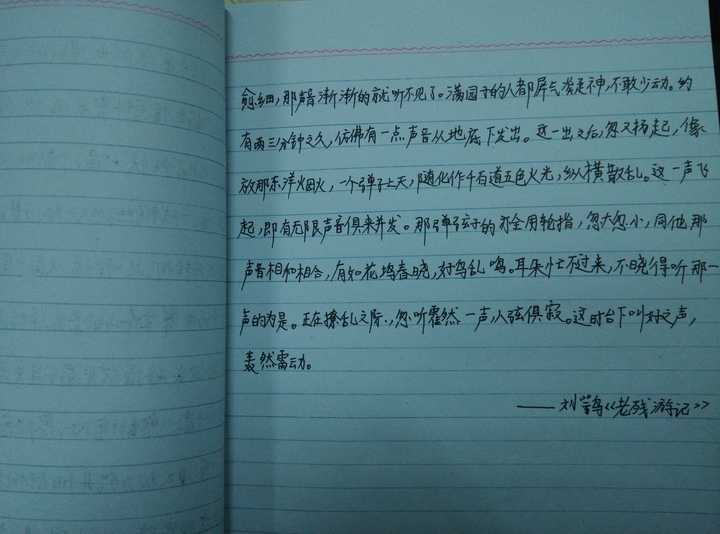 愈细，那声音渐渐的就听不见了。满园子的人都屏气凝神，不敢少动。约
有两三分钟之久，仿佛有一点声音从地底下发出。这一出之后，忽又扬起，像
放那东洋烟火，一个弹子上天，随化作千百道五色火光，纵横散乱。这一声飞
起，即有无限声音俱来并发。那弹弦子的亦全用轮指，忽大忽小，同他那
声音相和相合，有如花坞春晓，好鸟乱鸣。耳朵忙不过来，不晓得听那一
声的为是。正在撩乱之际，忽听霍然一声，人弦俱寂。这时台下叫好之声，
轰然雷动。
——刘鹗《老残游记》